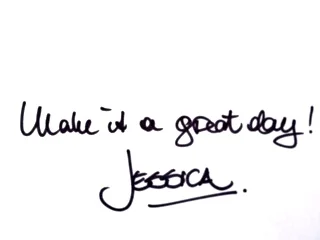 Make it a great day!
JESSICA.